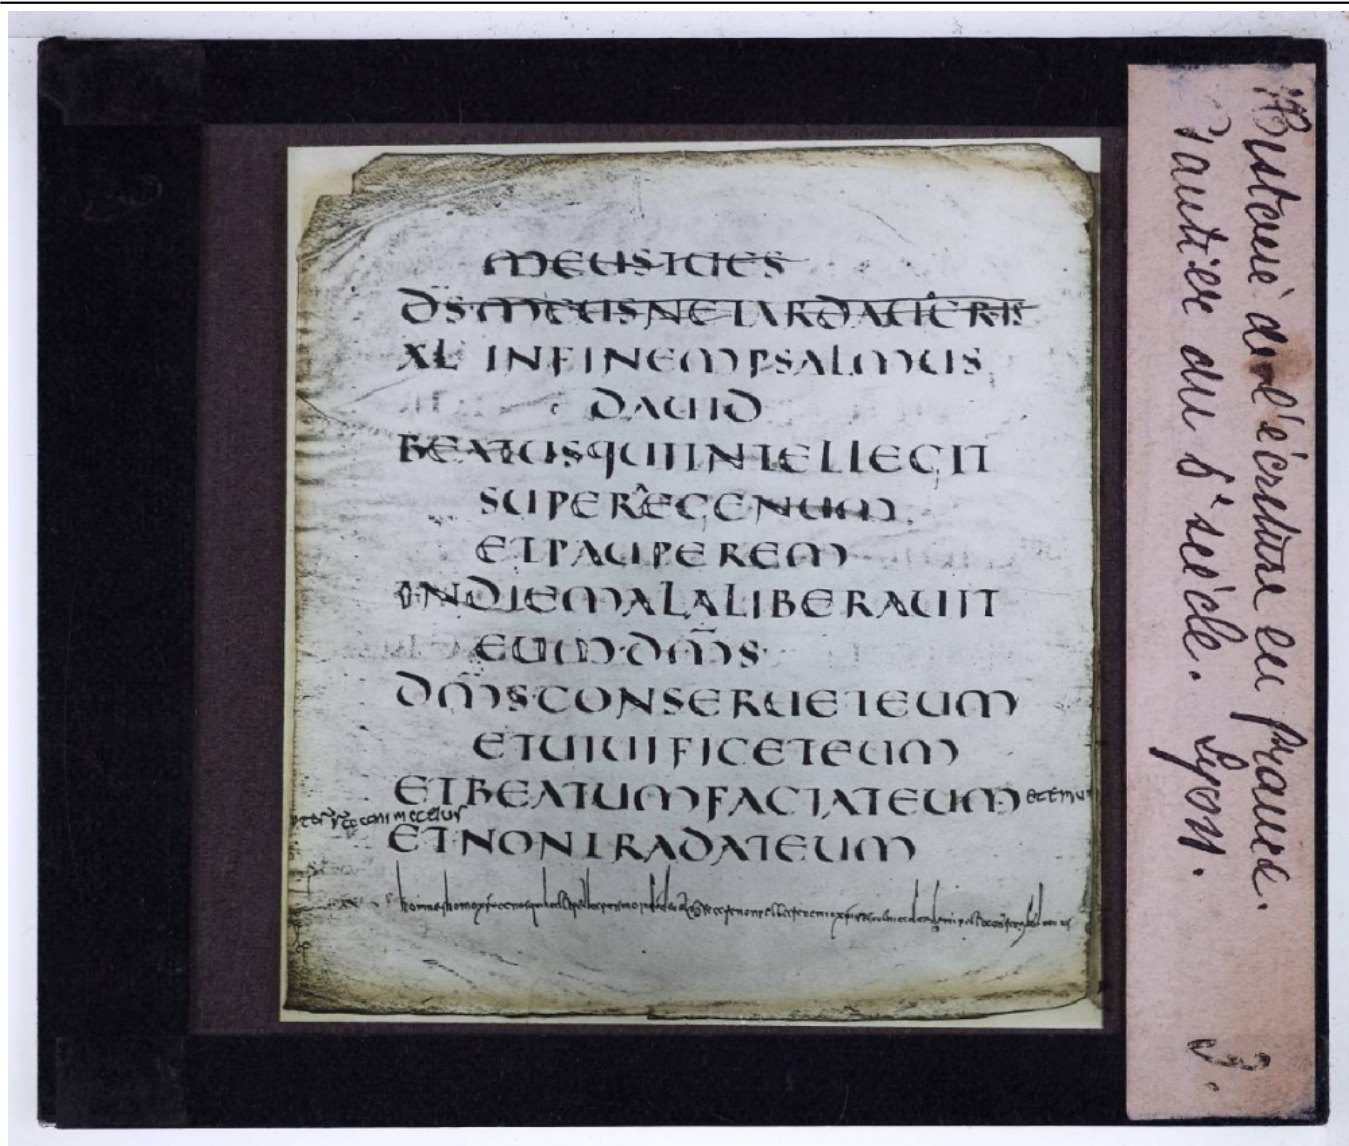 MEUSTUES
DS̄MEUSNETARDAUERIS
XL INFINEMPSALMUS
DAUID
BEATUSQUIINTELLEGIT
SUPEREGENUM
ETPAUPEREM
INDIEMALALIBERAUIT
EUM·DM̄S·
DM̄SCONSERUETEUM
ETUIUIFICETEUM
ETBEATUMFACIATEUM
ETNONTRADATEUM
Histoire de l'écriture en France.
Psautier du 6e siècle. Lyon.
3.